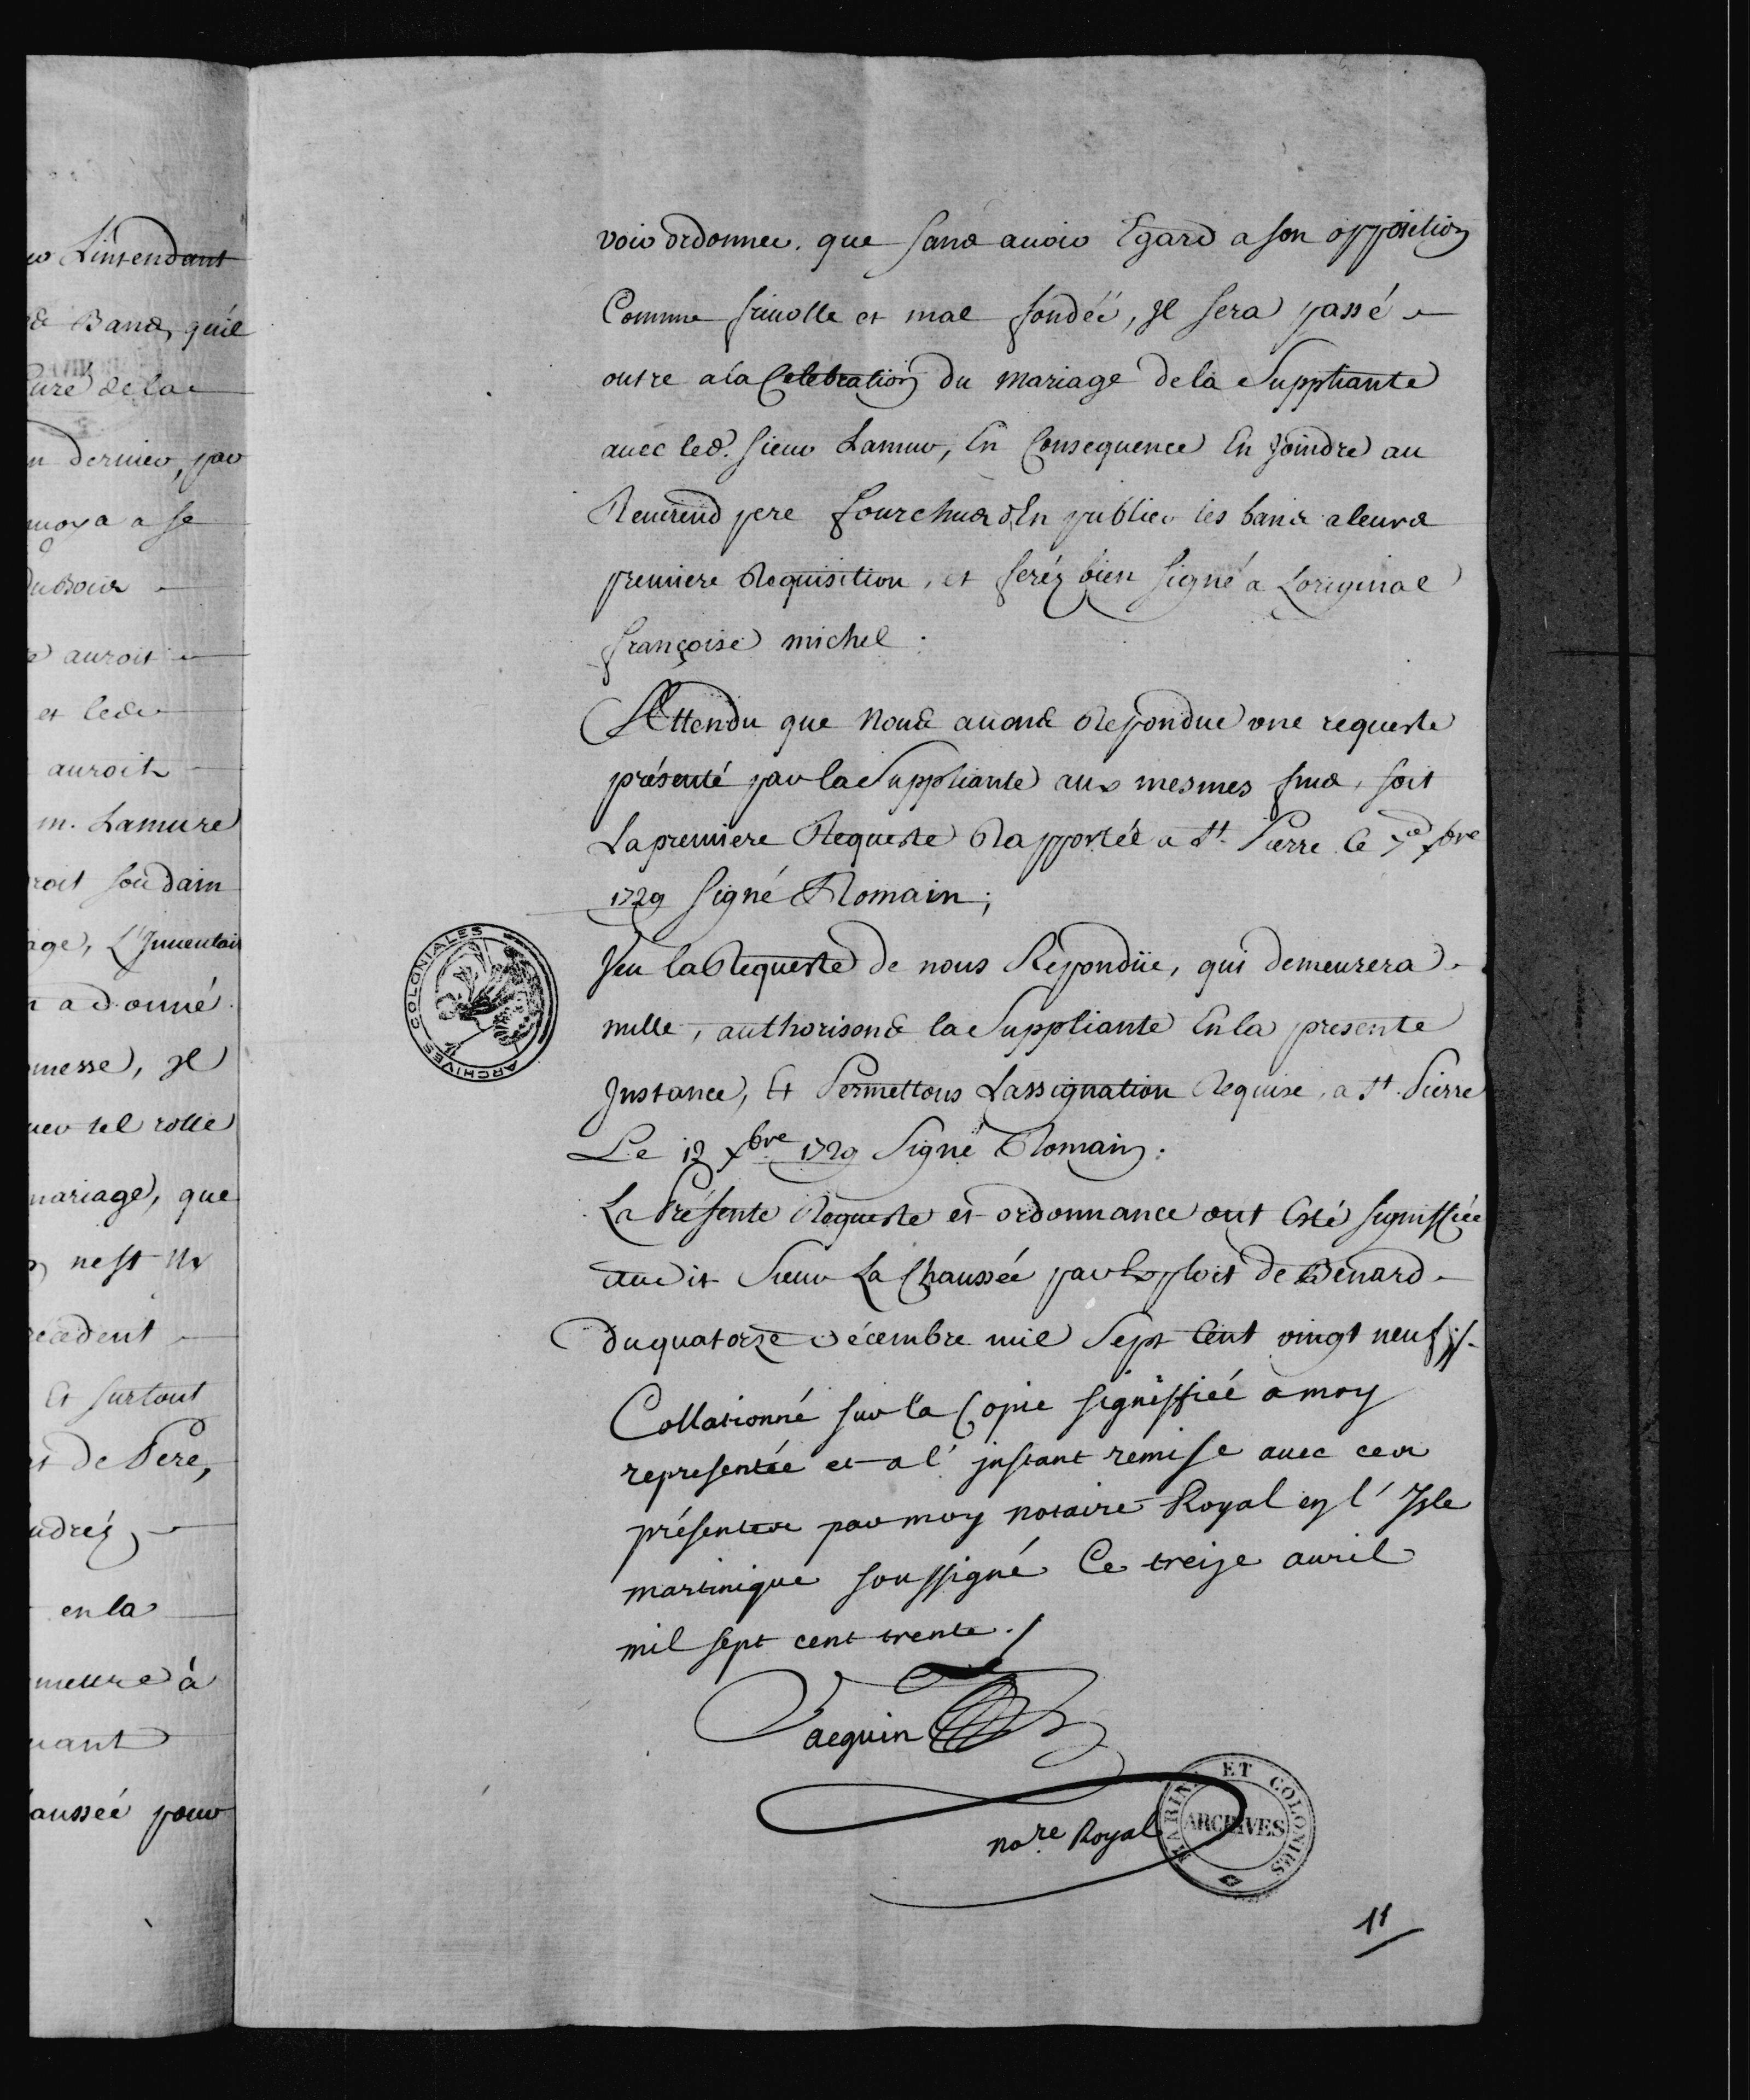 w Lintendant
de Bans, quil
Curé de la
n dernier, par
a se
auroit
et led.
auroit
m. Lamure
roit soudain
age, L'Jnuentair
n a donné
messe, Jl
uer tel rolle
mariage, que
nest
recedent
Et surtout
de Pere,
udréz
en la
mettre à
uant
aussée pour
voir ordonner. que sans auoir Egard a son opposition
Comme friuolle et mal fondéé, Jl sera passé
outre a la Celebration du mariage de la Suppliante
auec led. sieur Lamur, En Consequence En joindre au
Reuerend pere fourchus d'En publier les bans a leurs
premiere Requisition, et feréz bien signé a Loriginal
françoise michel.
Attendu que Nous auons Repondue une requeste
présenté par la Suppliante aux mesmes fins, soit
La premiere Requeste Rapportée a St. Pierre le 7e xbre
1729 signé Romain;
Veu la Requeste de nous Repondüe, qui demeurera
nulle, authorisons la Suppliante En la presente
Jnstance, Et Permettons Lassignation Requise, a St. Pierre
Le 12 xbre 1729 Signé Romain:
La Présente Requeste et ordonnance ont Esté signiffiée
audit Sieur La Chaussée par Exploit de Benard
du quatorze décembre mil Sept Cent vingt neuf
Collationné sur la Copie signiffiéé a moy
representée et a l'jnstant remise auec ces
présentes par moy notaire Royal en l'Jsle
martinique soussigné Ce treize auril
mil sept cent trente./
Vaequin
nore Royal
ARCHIVES COLONIALES
MARINE ET COLONIES
ARCHIVES
11